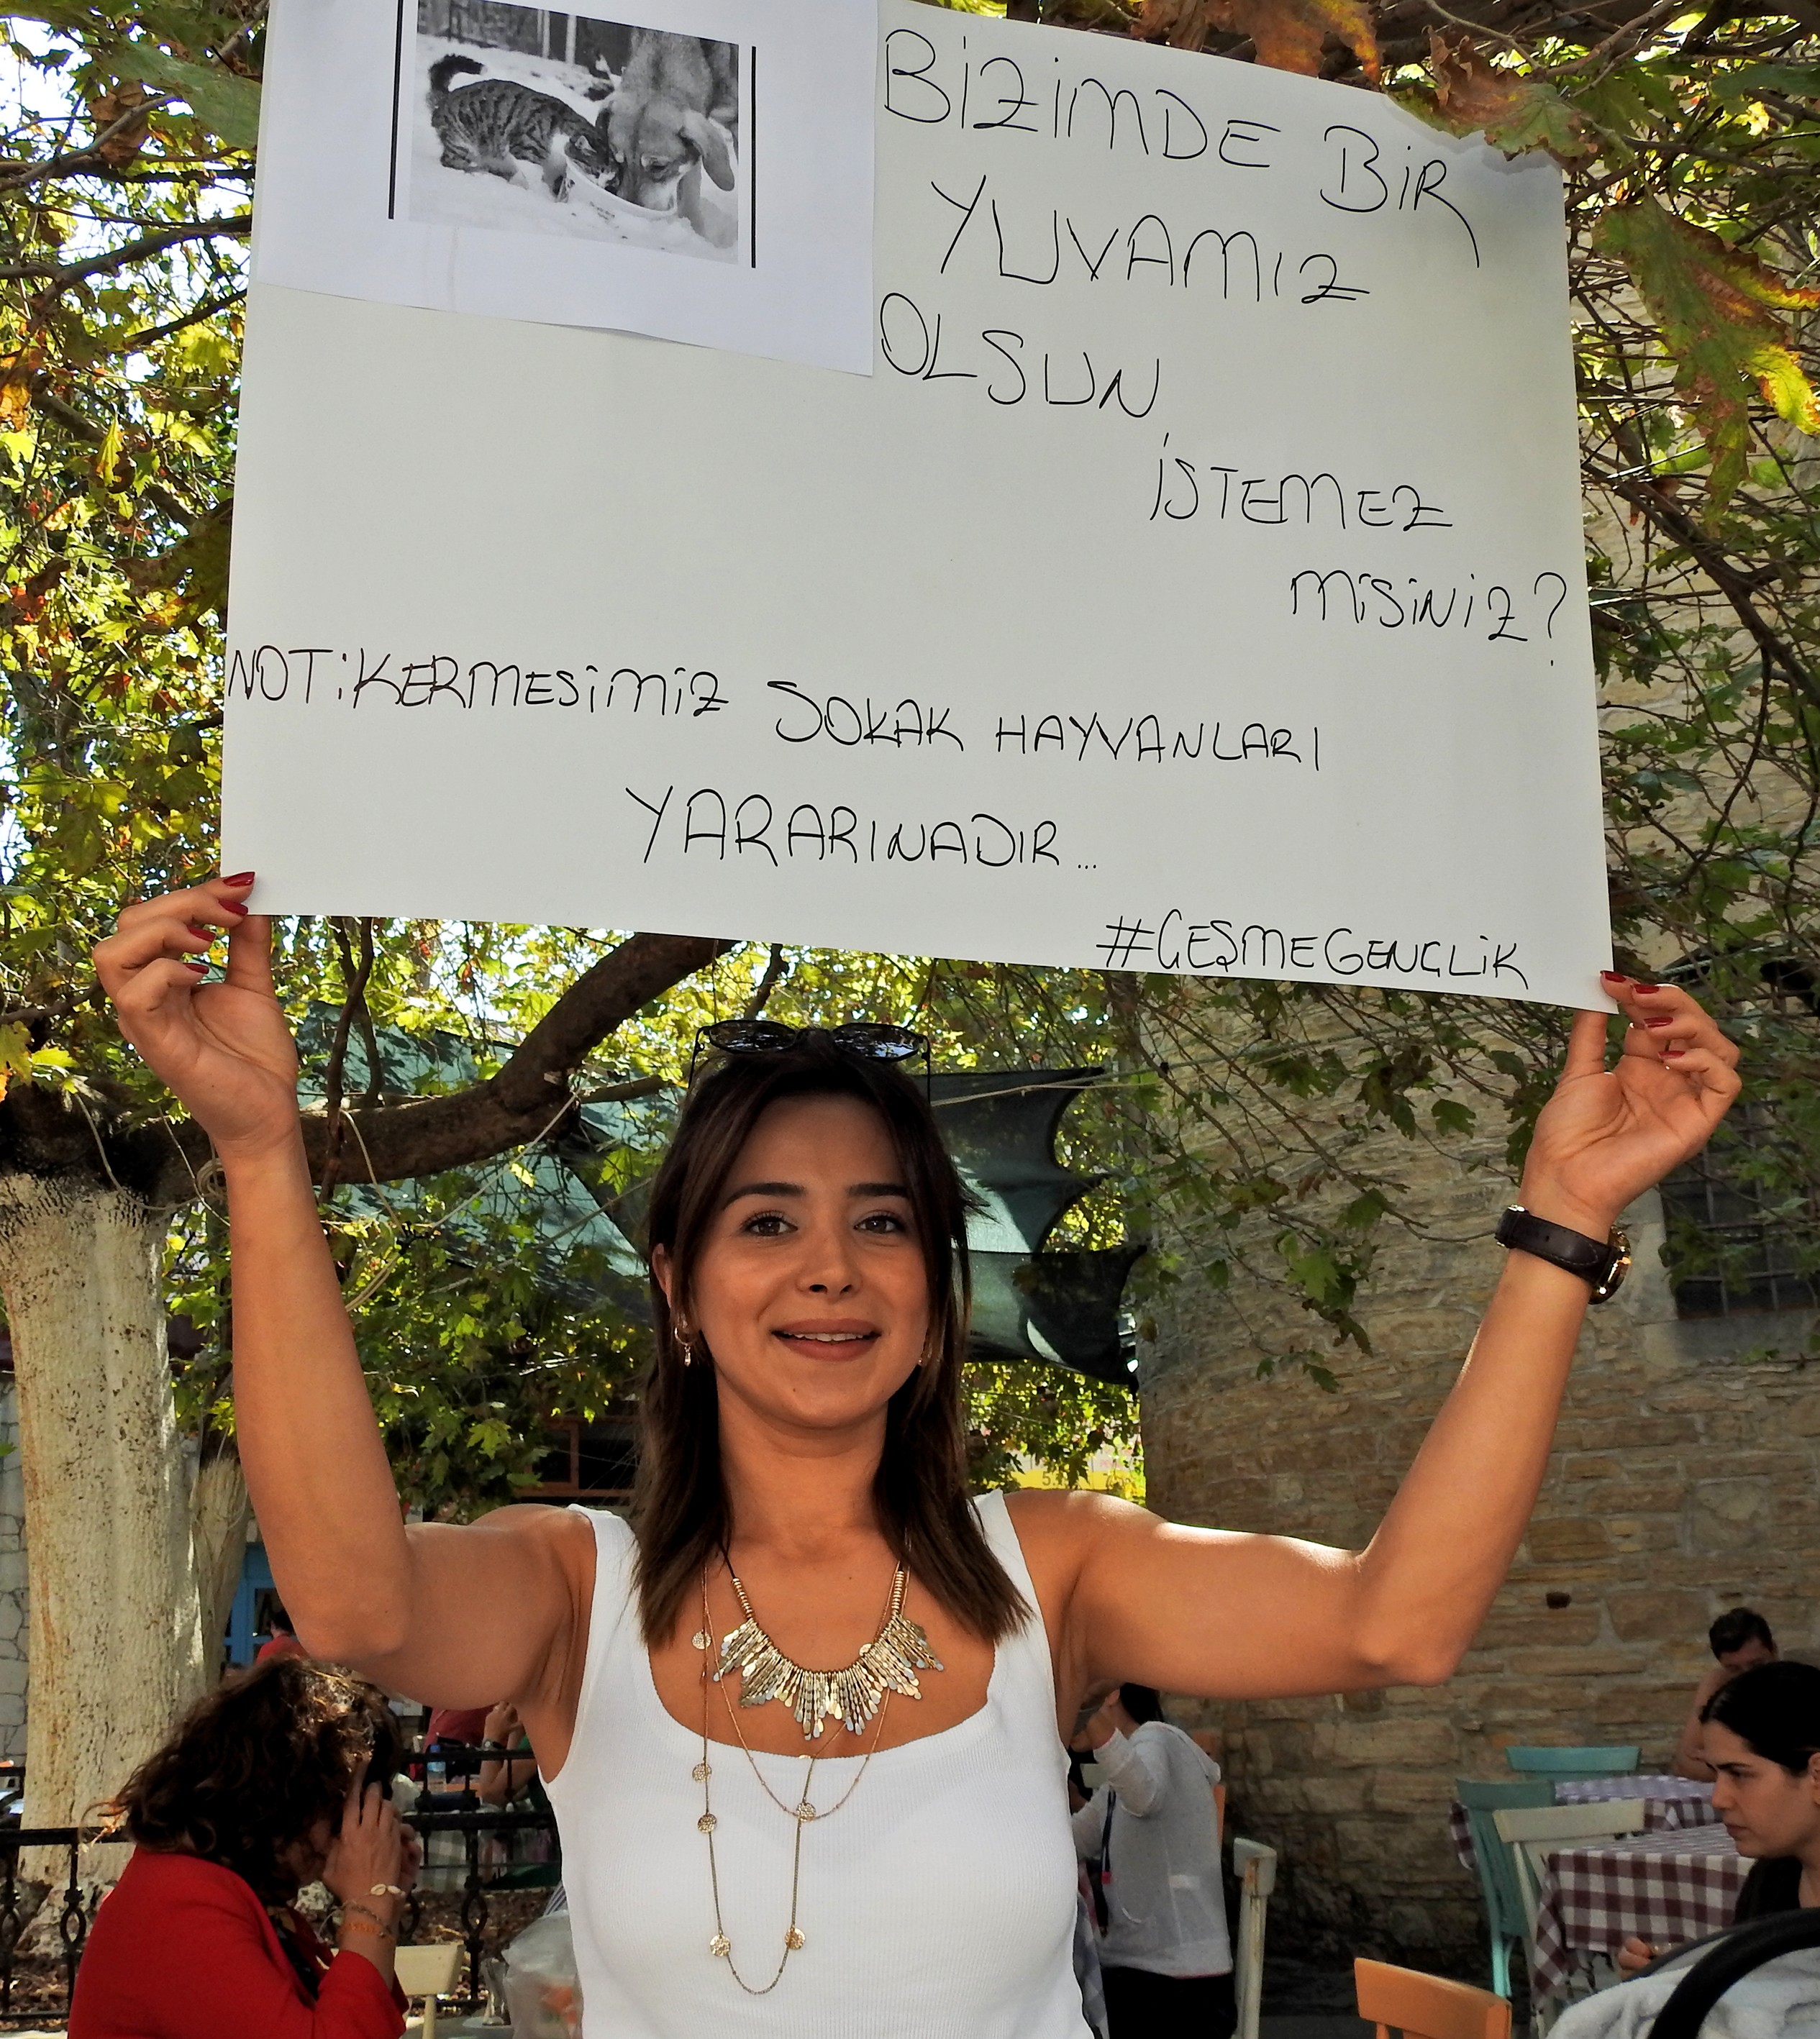 BİZİMDE BİR
YUVAMIZ
OLSUN
İSTEMEZ
MİSİNİZ?
NOT:KERMESİMİZ SOKAK HAYVANLARI
YARARINADIR...
#ÇEŞMEGENÇLİK